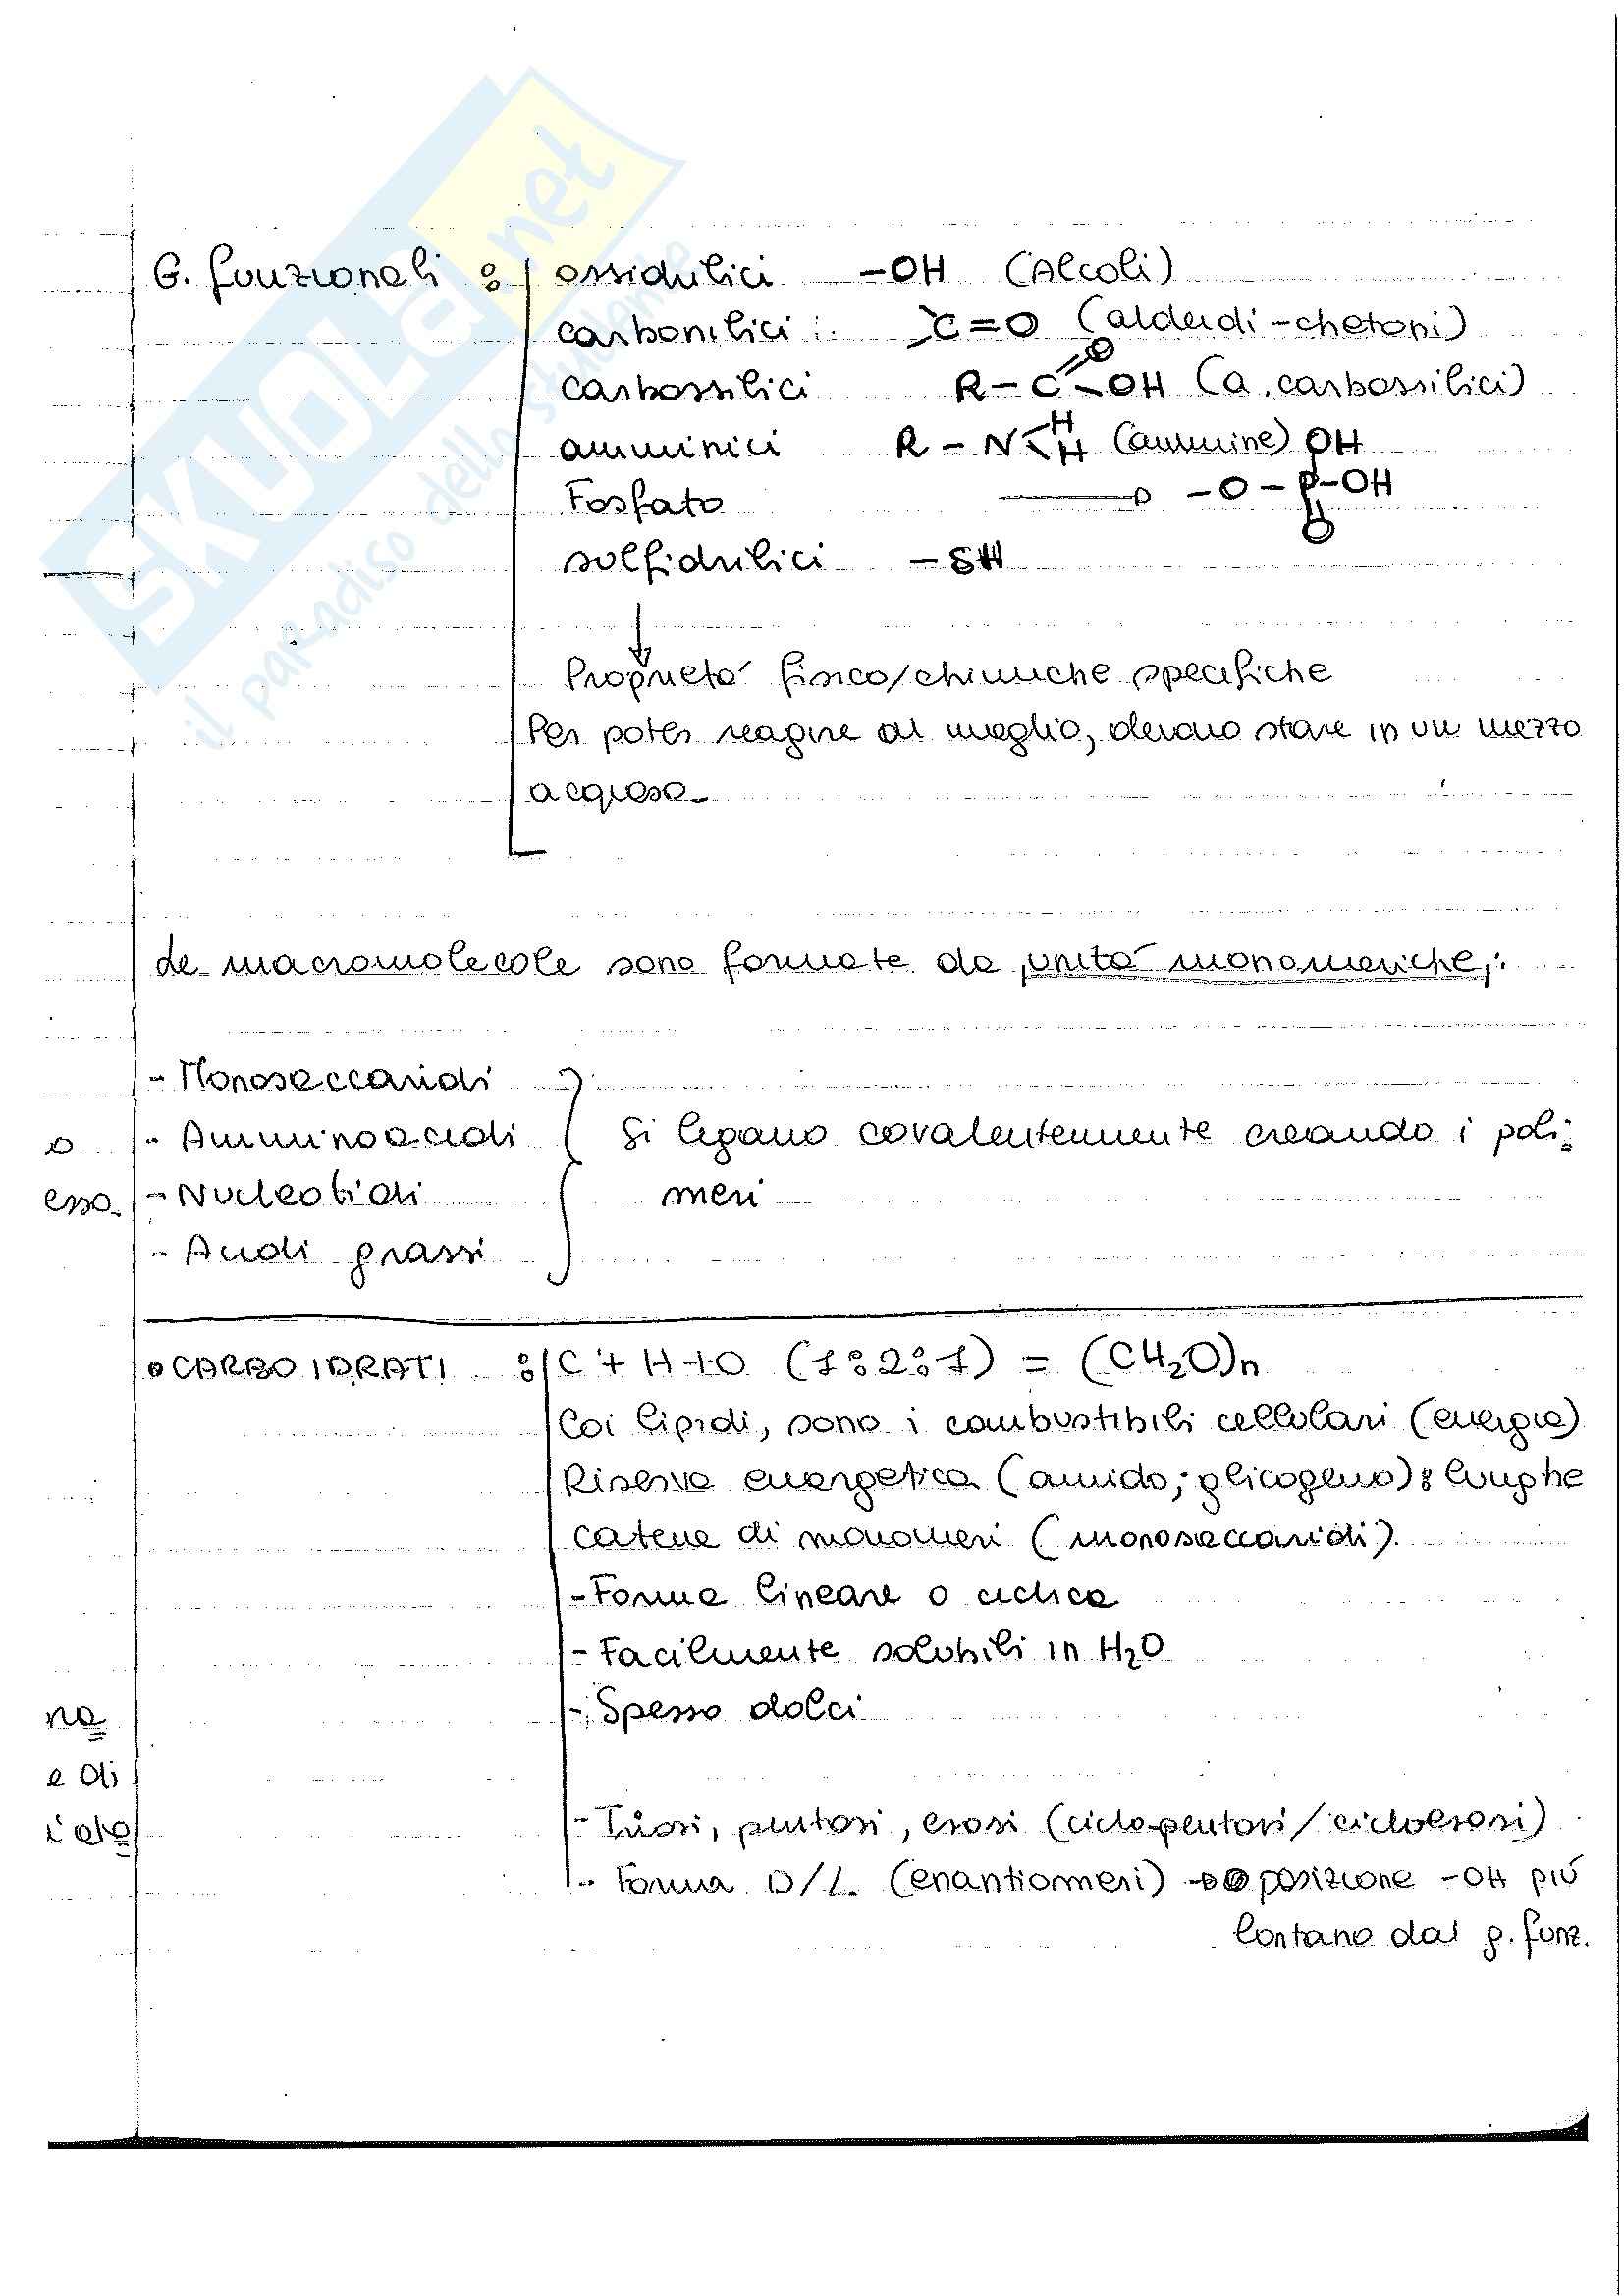 SKUOLA.net
il paradiso dello studente
G. funzionali : ossidrilici -OH (Alcoli)
carbonilici : >C=O (aldeidi-chetoni)
carbossilici R-C=O-OH (a. carbossilici)
amminici R-N<H H (ammine)
Fosfato → -O-P-OH OH O
solfidrilici -SH
↓
Proprietà fisico/chimiche specifiche
Per poter reagire al meglio, devono stare in un mezzo
acquoso.
Le macromolecole sono formate da unità monomeriche:
- Monosaccaridi
- Amminoacidi
- Nucleotidi
- Acidi grassi
Si legano covalentemente creando i poli=
meri
o
esso.
• CARBOIDRATI : C + H + O (1:2:1) = (CH₂O)n
Coi lipidi, sono i combustibili cellulari (energia)
Riserva energetica (amido; glicogeno): lunghe
catene di monomeri (monosaccaridi).
- Forma lineare o ciclica
- Facilmente solubili in H₂O
- Spesso dolci
na
e di
- Triosi, pentosi, esosi (ciclopentosi/cicloesosi)
- Forma D/L (enantiomeri) → posizione -OH più
lontano dal g. funz.